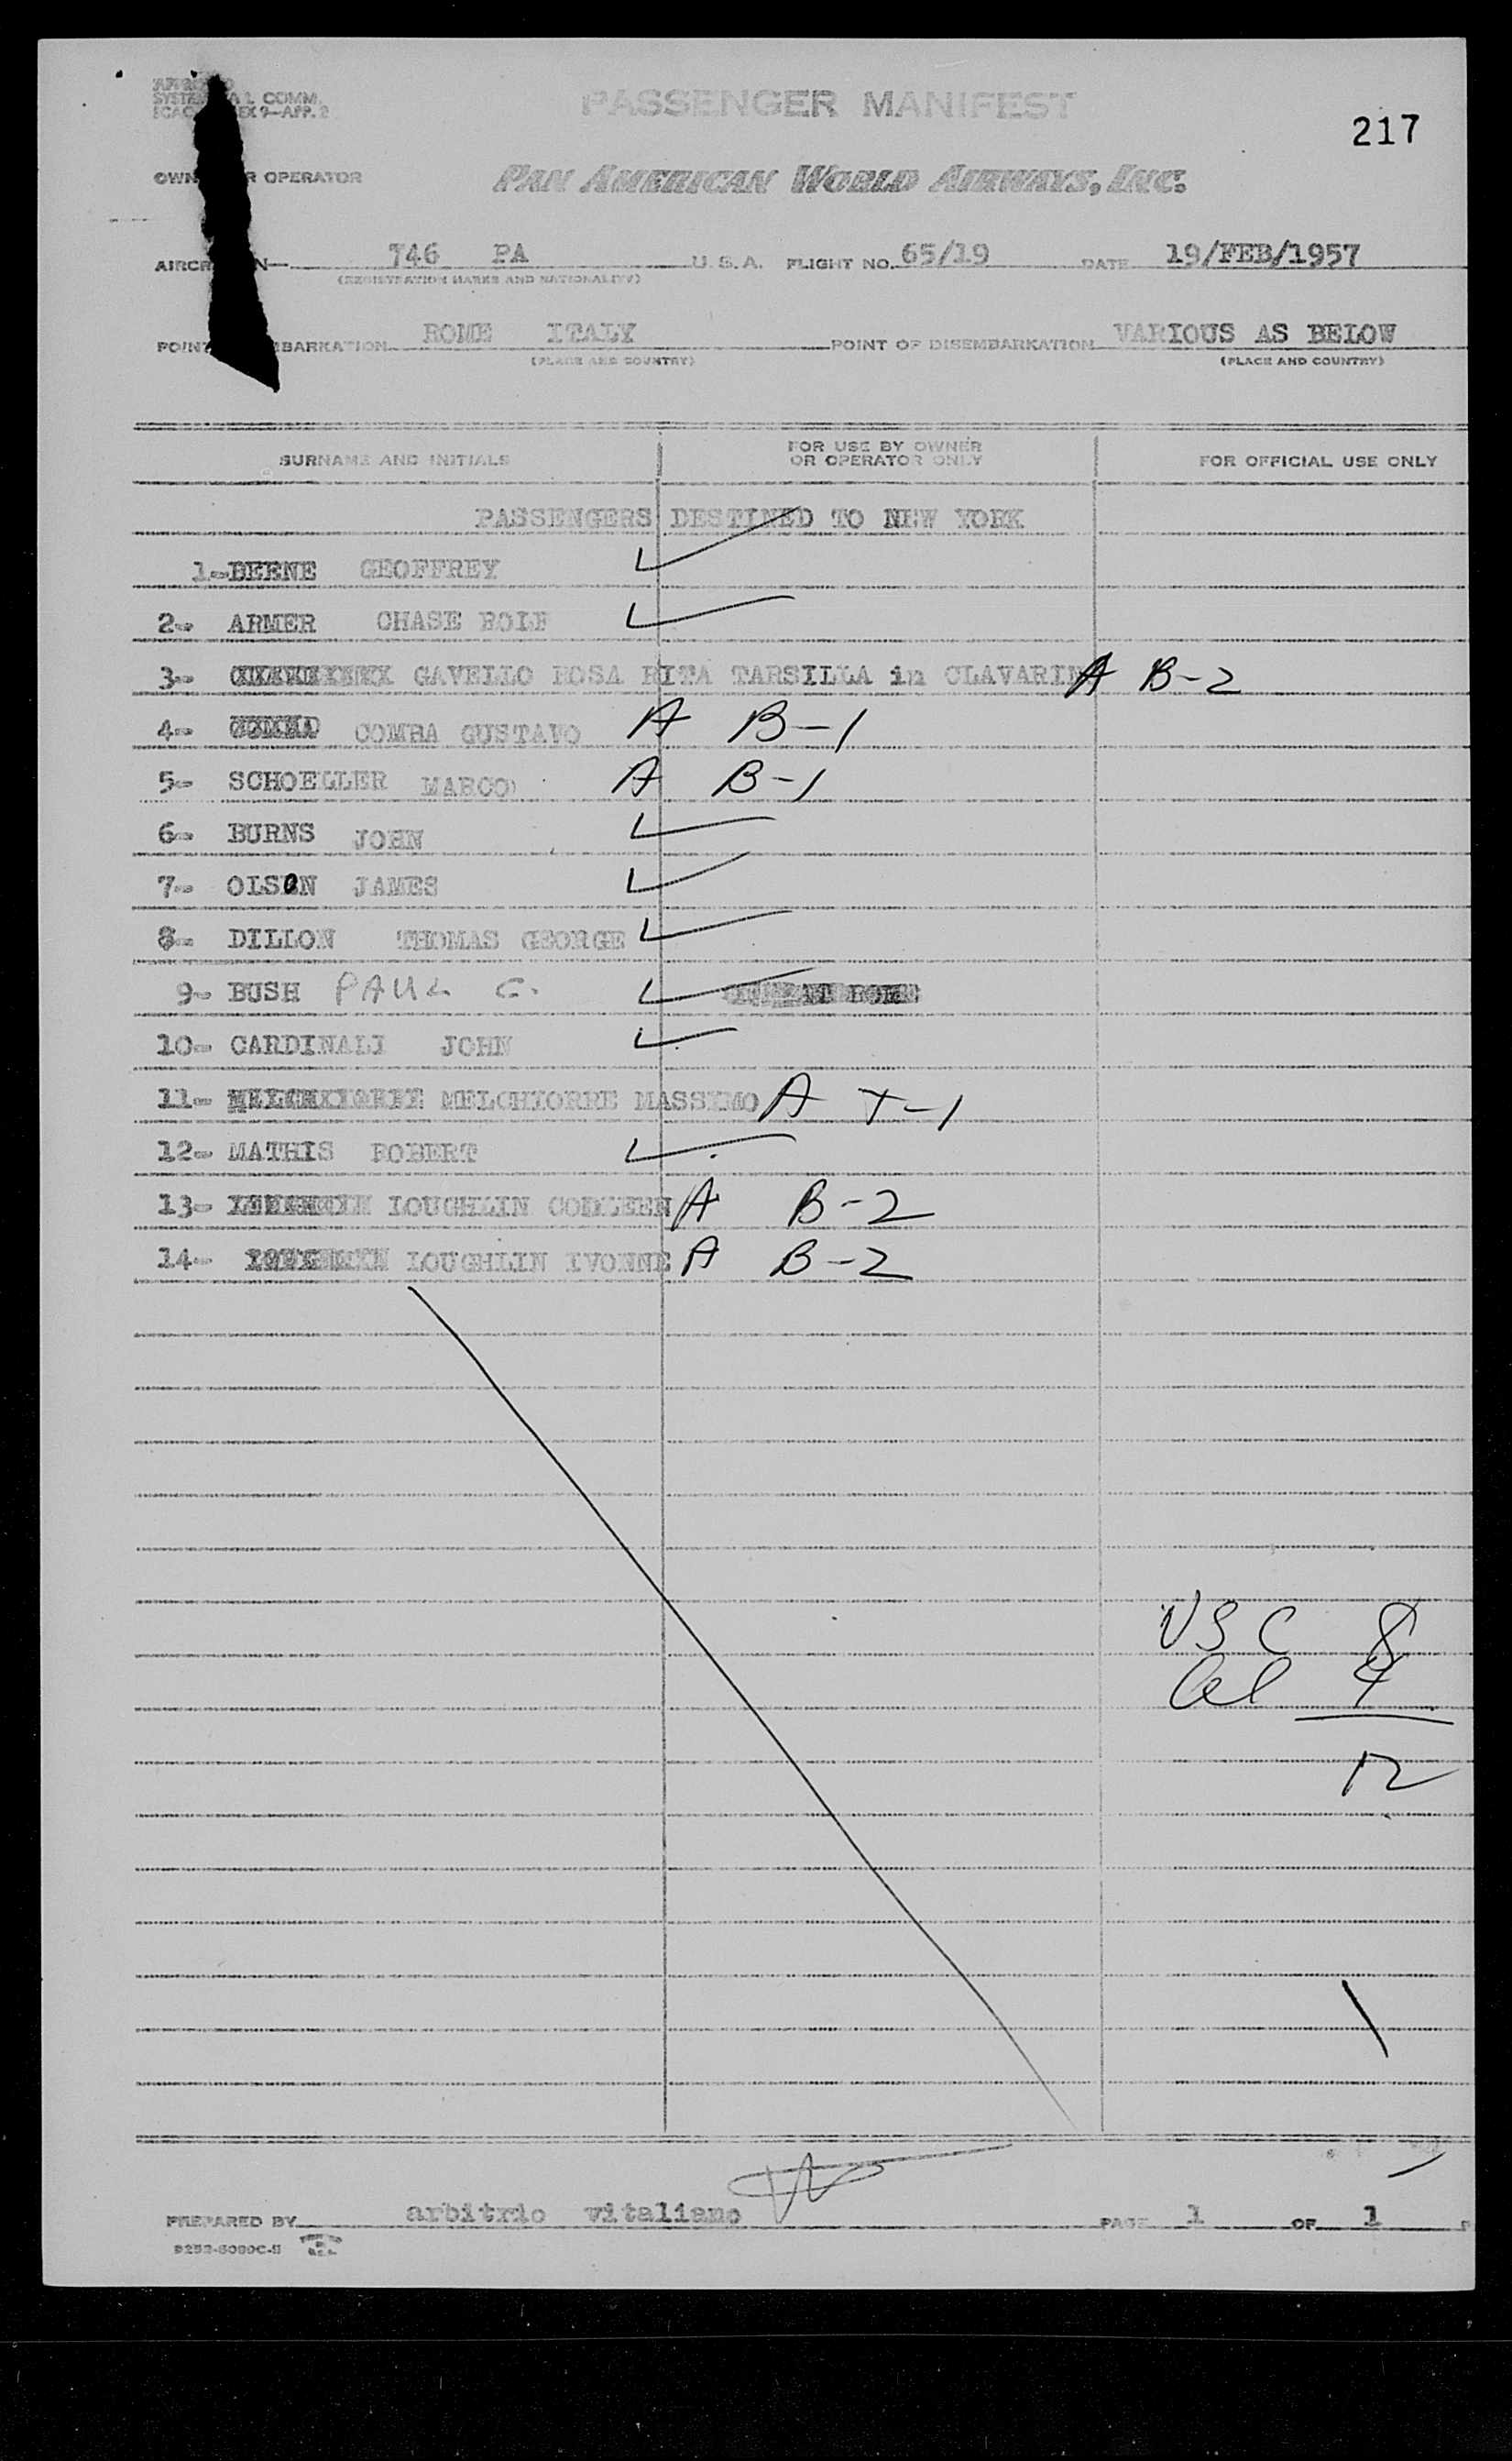 PASSENGER MANIFEST
217
COMM.
9—APP. 2
OPERATOR
PAN AMERICAN WORLD AIRWAYS, INC.
746 PA U.S.A. FLIGHT NO. 65/19 DATE 19/FEB/1957
(REGISTRATION MARKS AND NATIONALITY)
POINT ROME ITALY POINT OF DISEMBARKATION VARIOUS AS BELOW
(PLACE AND COUNTRY) (PLACE AND COUNTRY)
SURNAME AND INITIALS FOR USE BY OWNER OR OPERATOR ONLY FOR OFFICIAL USE ONLY
PASSENGERS DESTINED TO NEW YORK
1- BEENE GEOFFREY
2- ARMER CHASE ROLF
3- GAVELLO ROSA RITA TARSILLA in CLAVARIN A B-2
4- COMBA GUSTAVO A B-1
5- SCHOELLER MARCO A B-1
6- BURNS JOHN
7- OLSON JAMES
8- DILLON THOMAS GEORGE
9- BUSH PAUL C.
10- CARDINALI JOHN
11- MELCHIORRE MASSIMO A T-1
12- MATHIS ROBERT
13- LOUGHLIN COLLEEN A B-2
14- LOUGHLIN IVONNE A B-2
USC 8
Al 4
12
PREPARED BY arbitrio vitaliano PAGE 1 OF 1